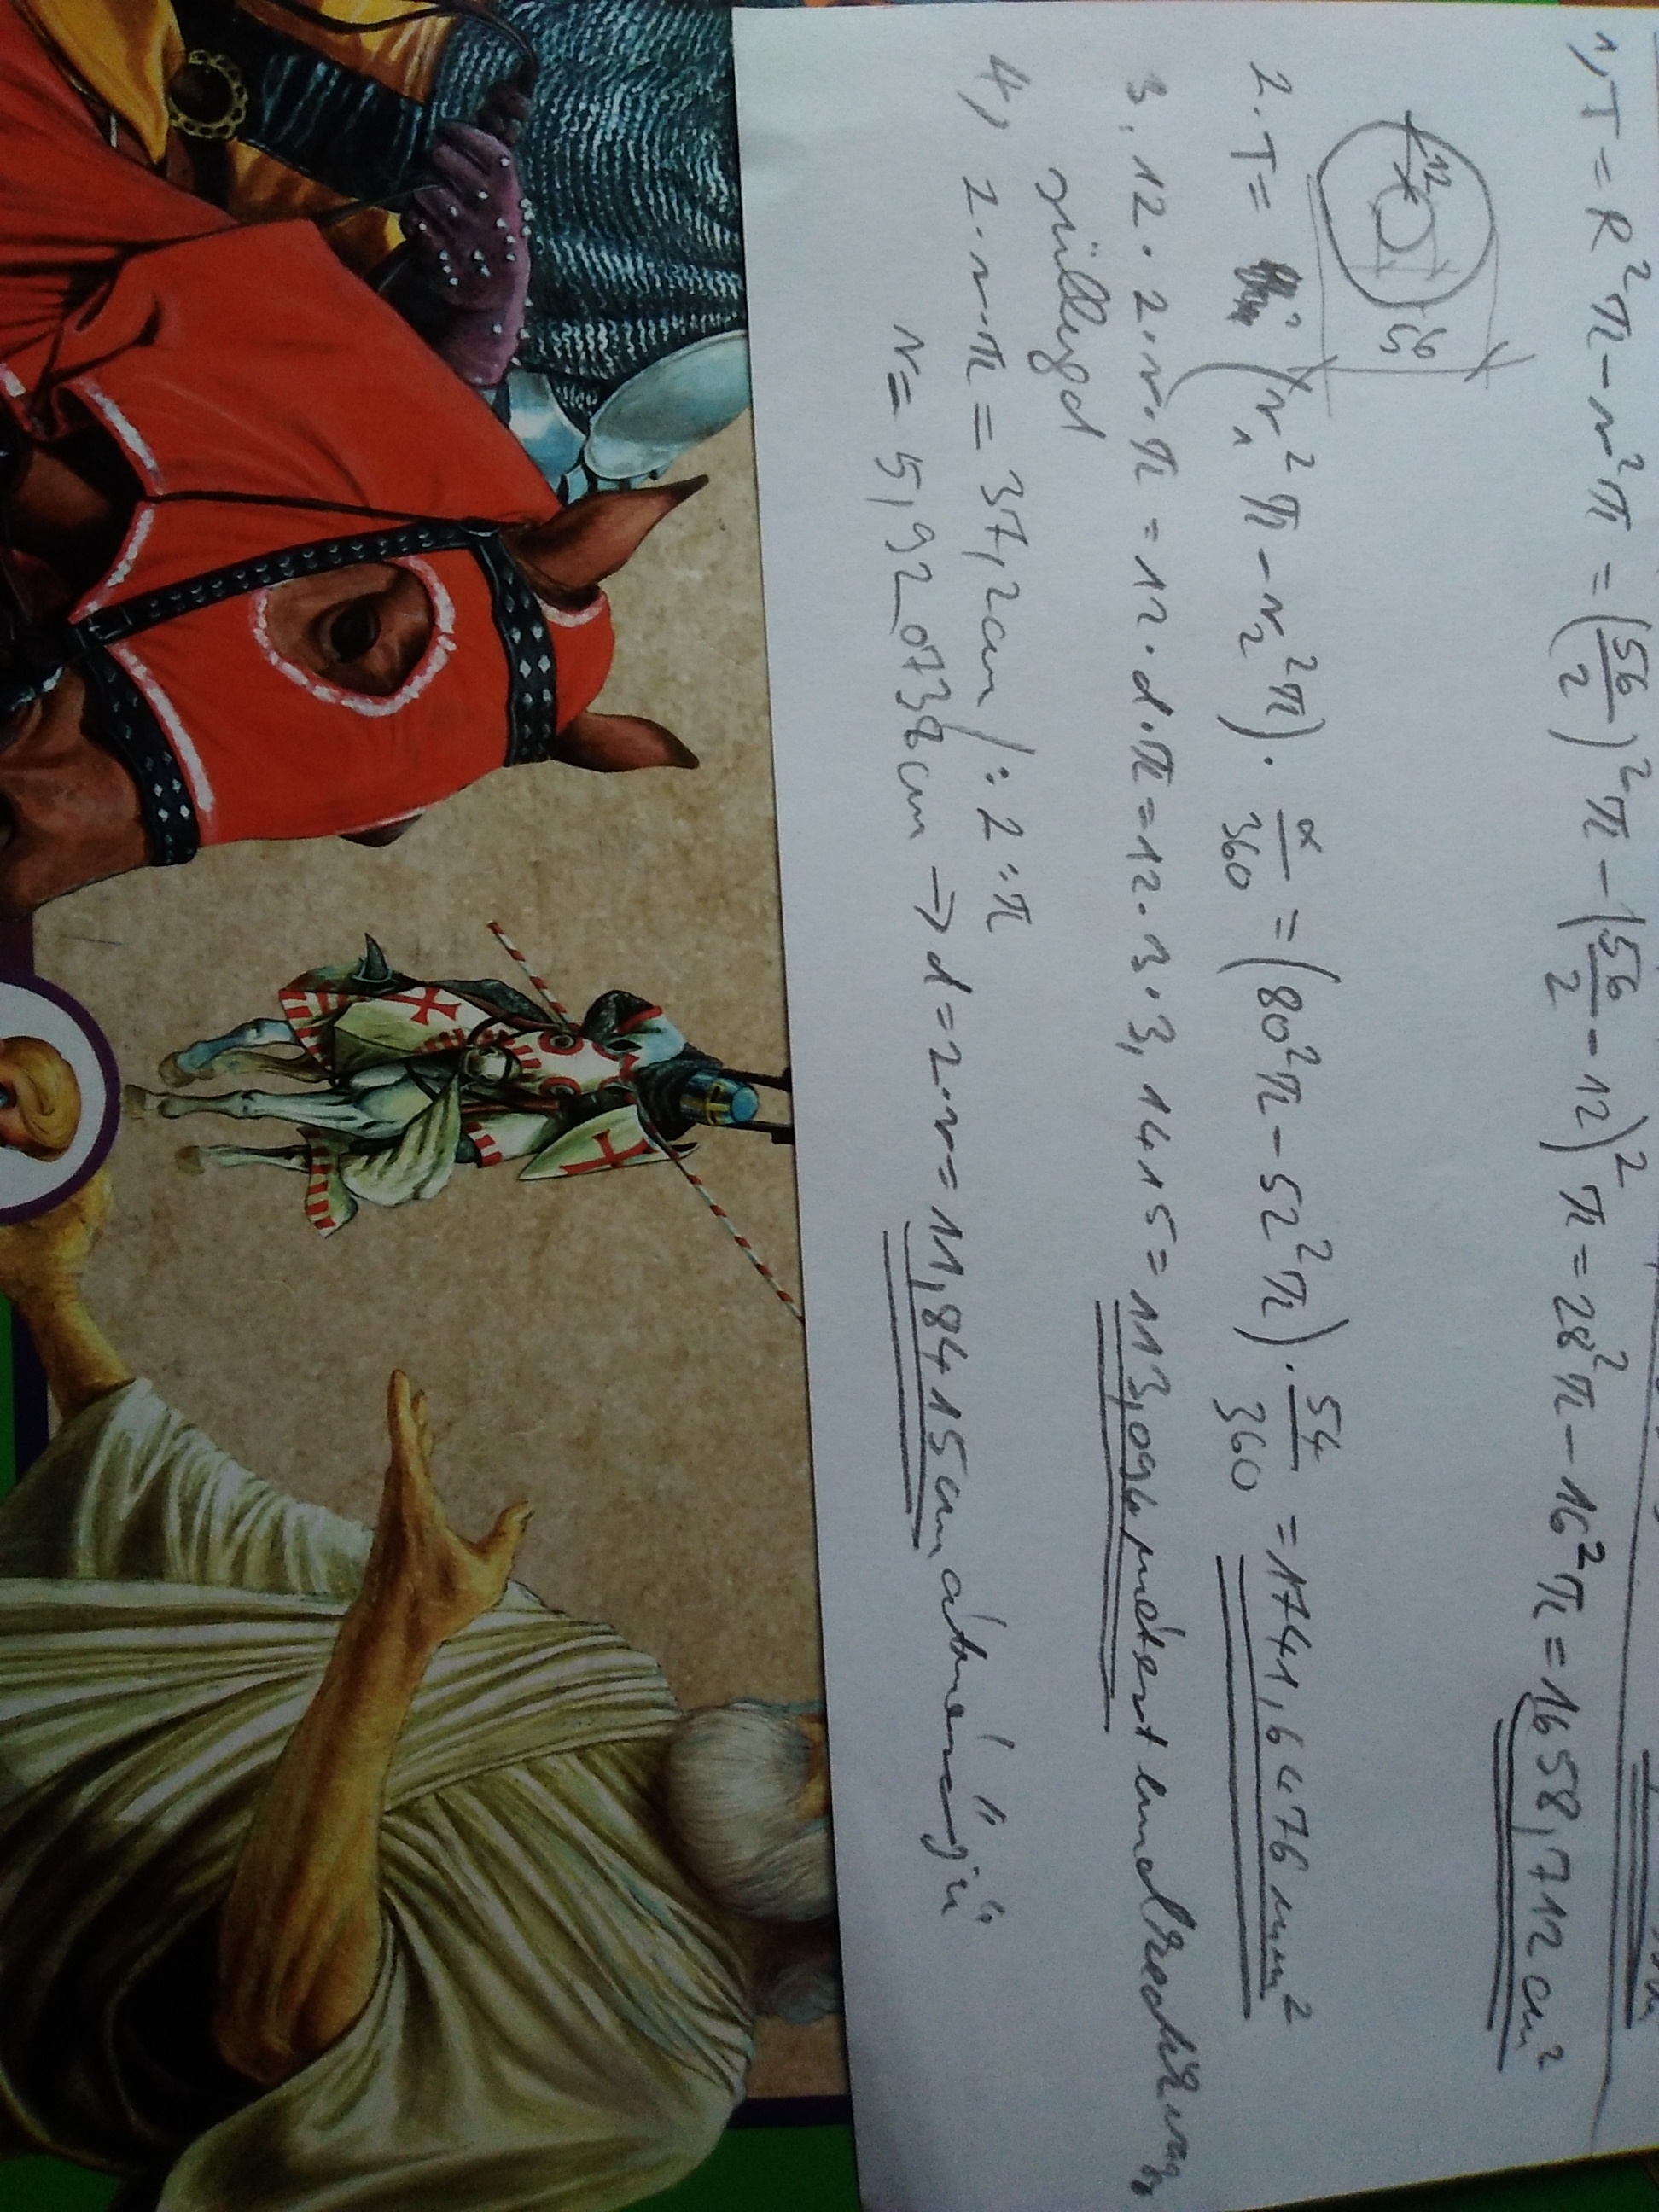 1, T = R²π - r²π = (56/2)²π - (56/2 - 12)²π = 28²π - 16²π = 1658,712 cm²
12
56
2. T = (r₁²π - r₂²π) · α/360 = (80²π - 52²π) · 54/360 = 1741,6476 mm²
3. 12 · 2 · r · π = 12 · d · π = 12 · 3 · 3,1415 = 113,094 métert
süllyed
4, 2 · r · π = 37,2 cm /: 2 : π
r = 5,920738 cm ⇒ d = 2 · r = 11,8415 cm átmérőjű